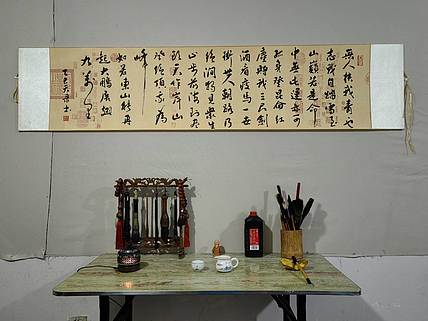 無人扶我青云
志我自踏雪至
山巅若是命
中無此運亦可
孤身登昆仑红
塵贈我三尺劍
酒肩瘦马一世
街世人朝路乃
经涧獨見眾生
止步前海到尽
頭天作岸山
登绝顶我為
峰
如若東山能再
起大鵬展翅
九萬里